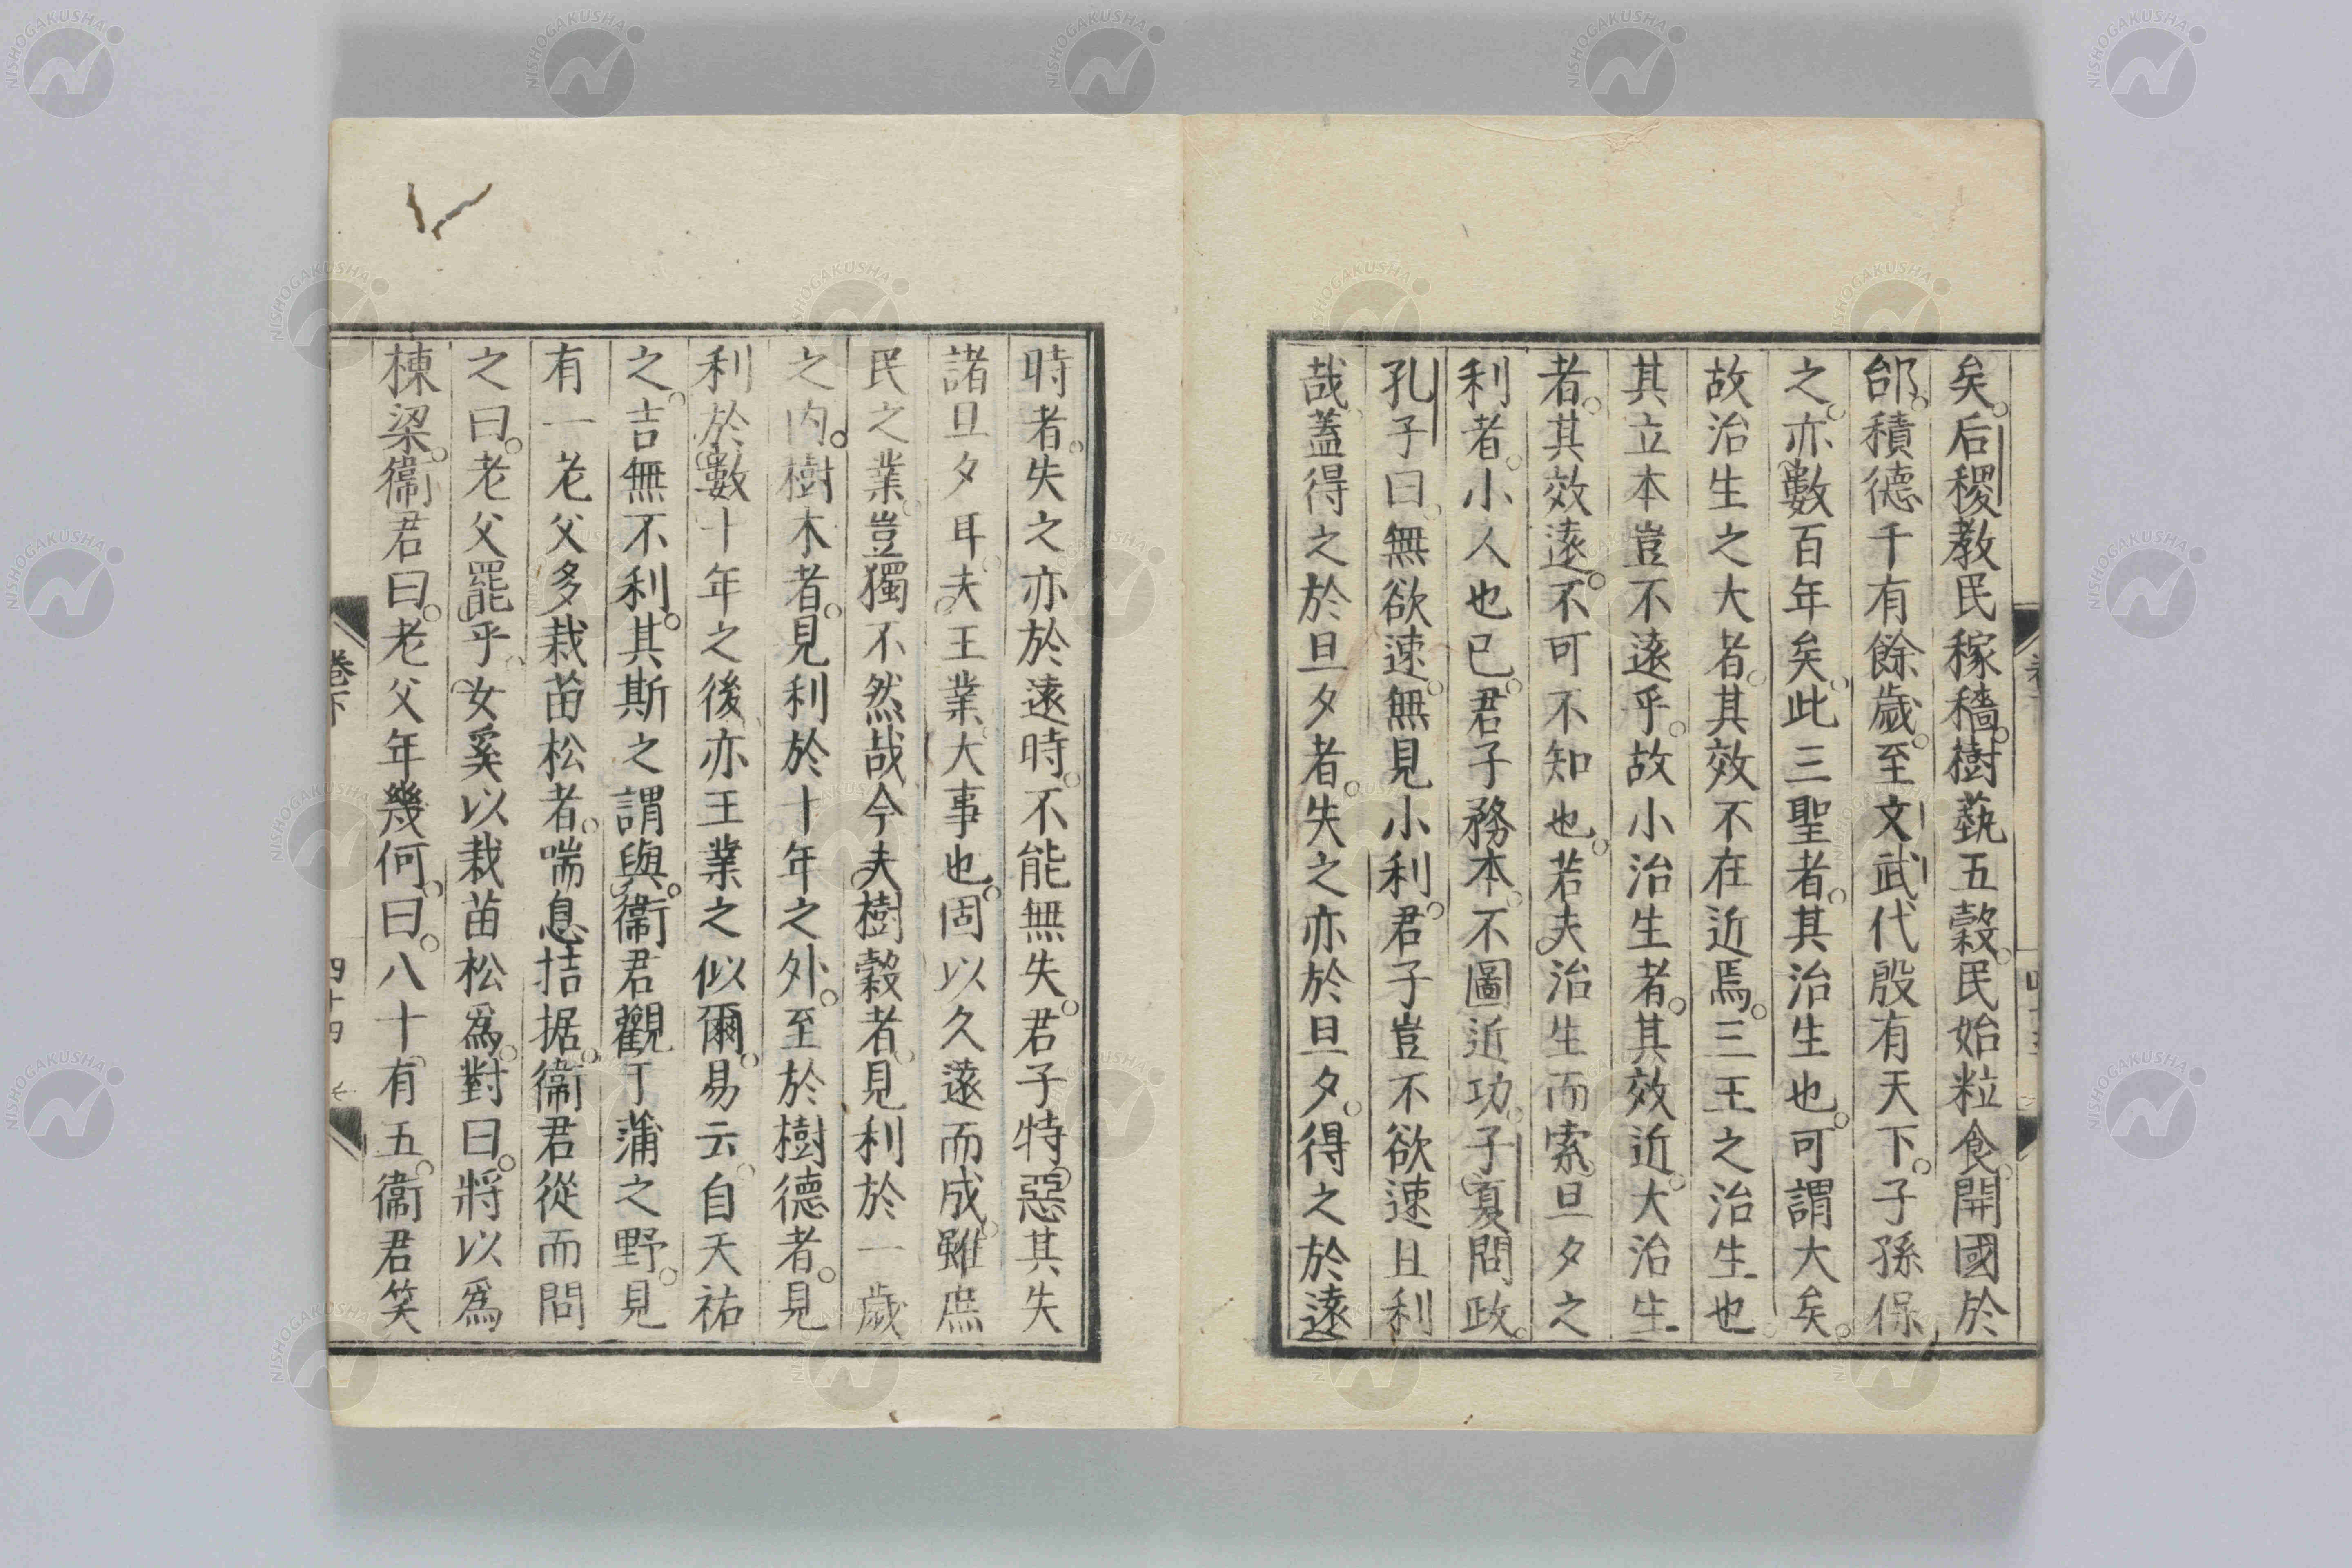 矣。后稷教民稼穡。樹蓺五穀。民始粒食。開國於
邰。積德千有餘歲。至文武代殷有天下。子孫保
之。亦數百年矣。此三聖者。其治生也。可謂大矣。
故治生之大者。其效不在近焉。三王之治生也。
其立本豈不遠乎。故小治生者。其效近。大治生
者。其效遠。不可不知也。若夫治生而索旦夕之
利者。小人也已。君子務本。不圖近功。子夏問政。
孔子曰。無欲速。無見小利。君子豈不欲速且利
哉。蓋得之於旦夕者。失之亦於旦夕。得之於遠
時者。失之亦於遠時。不能無失。君子特惡其失
諸旦夕耳。夫王業大事也。固以久遠而成。雖庶
民之業。豈獨不然哉。今夫樹穀者。見利於一歲
之內。樹木者。見利於十年之外。至於樹德者。見
利於數十年之後。亦王業之似爾。易云。自天祐
之。吉無不利。其斯之謂與。衞君觀于蒲之野。見
有一老父多栽苗松者。喘息拮据。衞君從而問
之曰。老父罷乎。女奚以栽苗松爲。對曰。將以爲
棟梁。衞君曰。老父年幾何。曰。八十有五。衞君笑
卷下
四十四
NISHOGAKUSHA